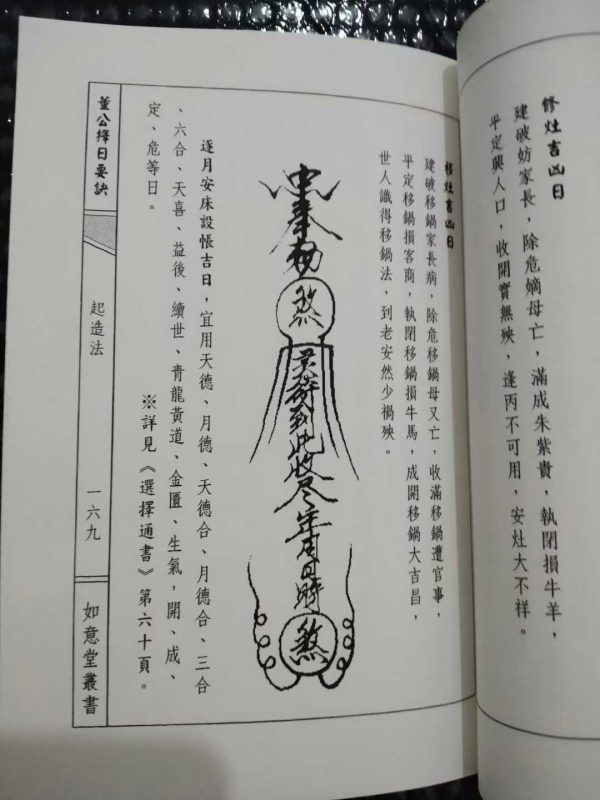 修灶吉凶日
建破妨家長，除危嫡母亡，滿成朱紫貴，執閉損牛羊，
平定興人口，收開實無殃，逢丙不可用，安灶大不祥。
移灶吉凶日
建破移鍋家長病，除危移鍋母又亡，收滿移鍋遭官事，
平定移鍋損客商，執閉移鍋損牛馬，成開移鍋大吉昌，
世人識得移鍋法，到老安然少禍殃。
奉勅
煞
灵符到此收尽年月日時
煞
逐月安床設帳吉日，宜用天德、月德、天德合、月德合、三合
、六合、天喜、益後、續世、青龍黃道、金匱、生氣，開、成、
定、危等日。
※詳見《選擇通書》第六十頁。
董公擇日要訣
起造法
一六九
如意堂叢書